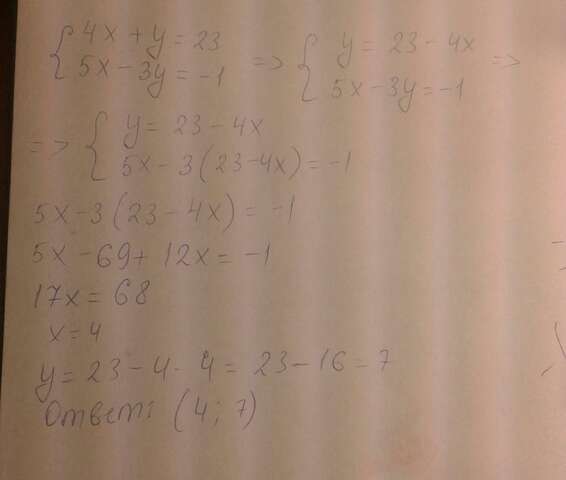 { 4x + y = 23 => { y = 23 - 4x =>
{ 5x - 3y = -1 { 5x - 3y = -1
=> { y = 23 - 4x
{ 5x - 3(23 - 4x) = -1
5x - 3(23 - 4x) = -1
5x - 69 + 12x = -1
17x = 68
x = 4
y = 23 - 4 · 4 = 23 - 16 = 7
Ответ: (4; 7)